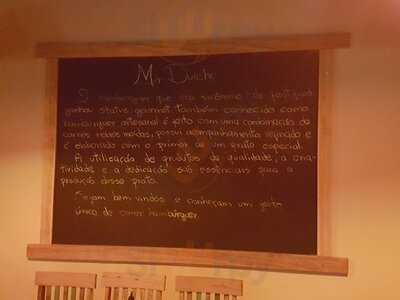 Mr. Dutche
O hambúrguer que era sinônimo de fastfood
ganhou status gourmet também conhecido como
hambúrguer artesanal é feito com uma combinação de
carnes nobres moídas, possui acompanhamento refinado e
é elaborado com o primor de um estilo especial.
A utilização de produtos de qualidade, a cria-
tividade e a dedicação são essenciais para a
produção desse prato.
Sejam bem vindos e conheçam um jeito
único de comer hambúrguer.